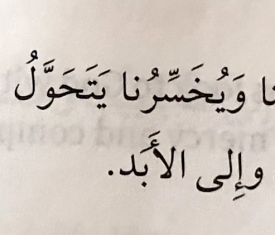 نا وَيُخَسِّرُنا يَتَحَوَّلُ
وإِلى الأَبَد.